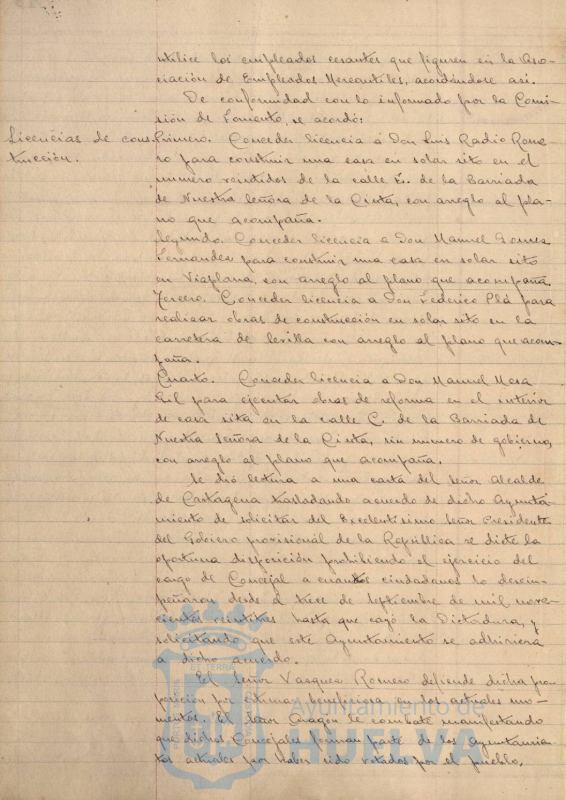 utilice los empleados cesantes que figuren en la Aso-
ciación de Empleados Mercantiles, acordándose así.
De conformidad con lo informado por la Comi-
sión de Fomento, se acordó:
Licencias de cons-
trucción.
Primero. Conceder licencia á Don Luis Radio Rome-
ro para construir una casa en solar sito en el
numero veintidos de la calle E. de la Barriada
de Nuestra Señora de la Cinta, con arreglo al pla-
no que acompaña.
Segundo. Conceder licencia a Don Manuel Gomez
Fernandez para construir una casa en solar sito
en Viaplana, con arreglo al plano que acompaña.
Tercero. Conceder licencia a Don Federico Plá para
realizar obras de construcción en solar sito en la
carretera de Sevilla con arreglo al plano que acom-
paña.
Cuarto. Conceder licencia a Don Manuel Mesa
Gil para ejecutar obras de reforma en el interior
de casa sita en la calle C. de la Barriada de
Nuestra Señora de la Cinta, sin numero de gobierno,
con arreglo al plano que acompaña.
Se dió lectura a una carta del Señor Alcalde
de Cartagena trasladando acuerdo de dicho Ayunta-
miento de solicitar del Excelentisimo Señor Presidente
del Gobierno provisional de la República se dicte la
oportuna disposición prohibiendo el ejercicio del
cargo de Concejal a cuantos ciudadanos lo desem-
peñaron desde el trece de Septiembre de mil nove-
cientos veintitres hasta que cayó la Dictadura, y
solicitando que este Ayuntamiento se adhiriera
a dicho acuerdo.
El Señor Vazquez Romero defiende dicha pro-
posición por estimar beneficiosa en los actuales mo-
mentos. El Señor Aragón le combate manifestando
que dichos Concejales forman parte de los Ayuntamien-
tos actuales por haber sido votados por el pueblo.
Ayuntamiento de
HUELVA